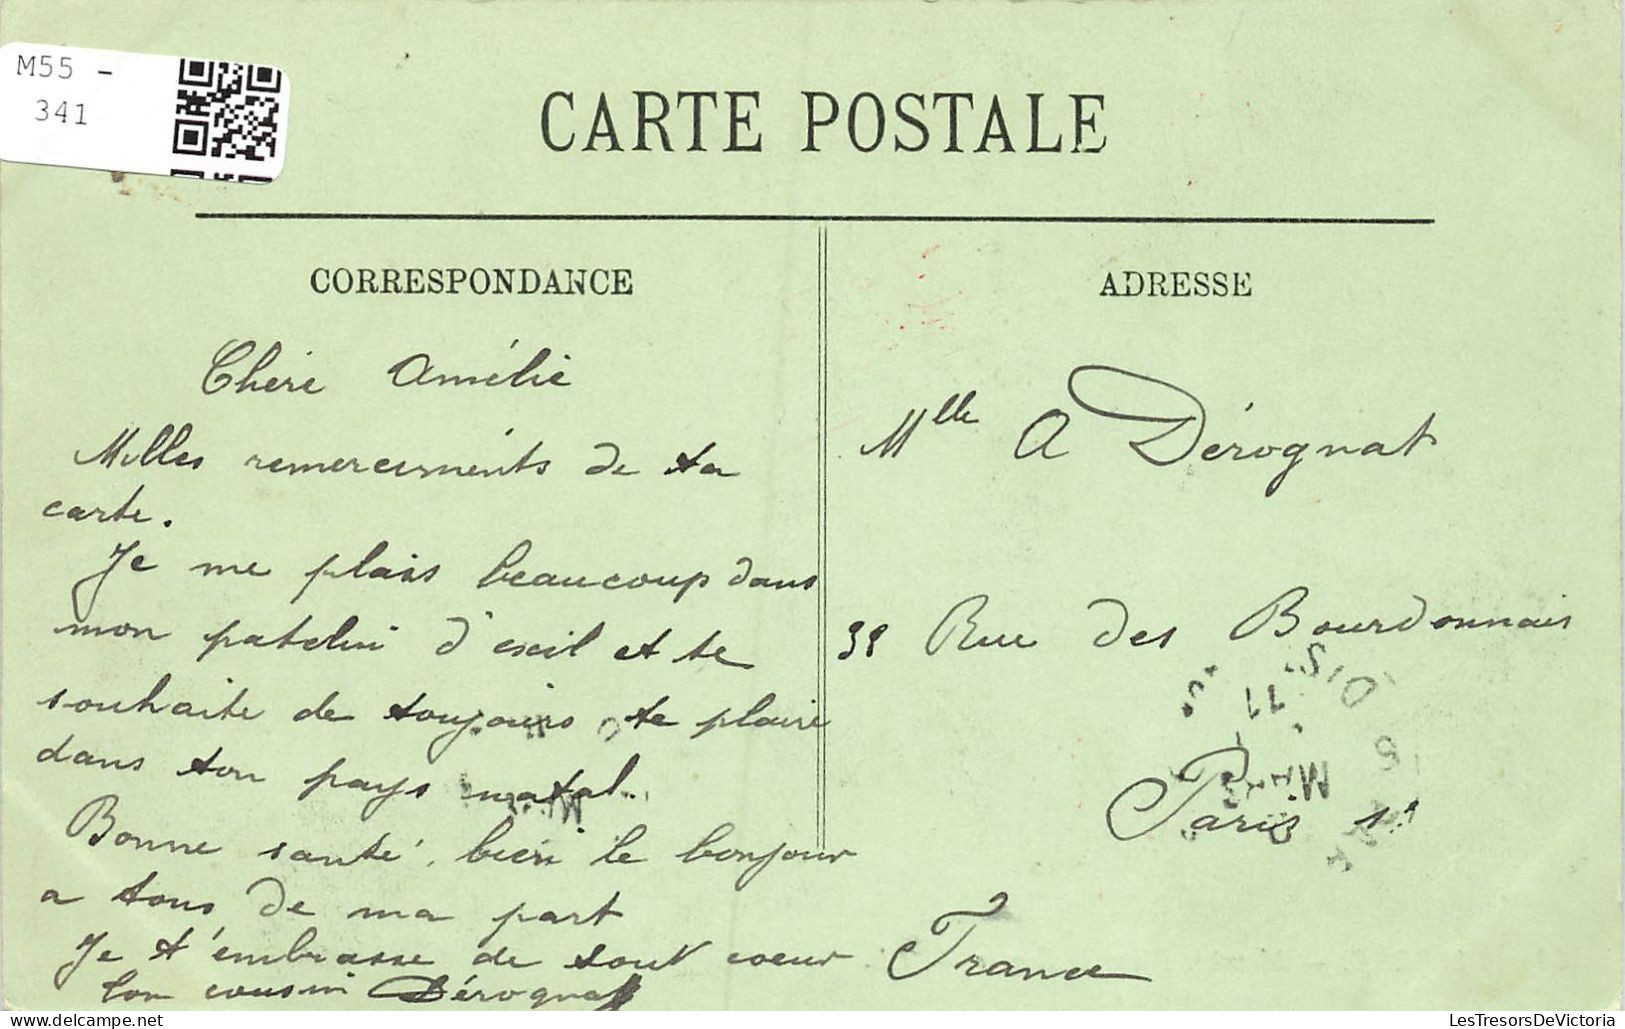 M55 -
341
CARTE POSTALE
CORRESPONDANCE
Chère Amélie
Milles remerciments de ta
carte.
Je me plais beaucoup dans
mon patelin d'exil et te
souhaite de toujours te plaire
dans ton pays natal.
Bonne santé, bien le bonjour
a tous de ma part
Je t'embrasse de tout coeur
Ton cousin Dérognat
ADRESSE
Mlle A Dérognat
39 Rue des Bourdonnais
Paris 1er
France
LesTresorsDeVictoria